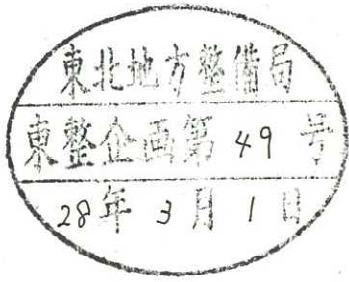 東北地方整備局
東整企画第49号
28年3月1日